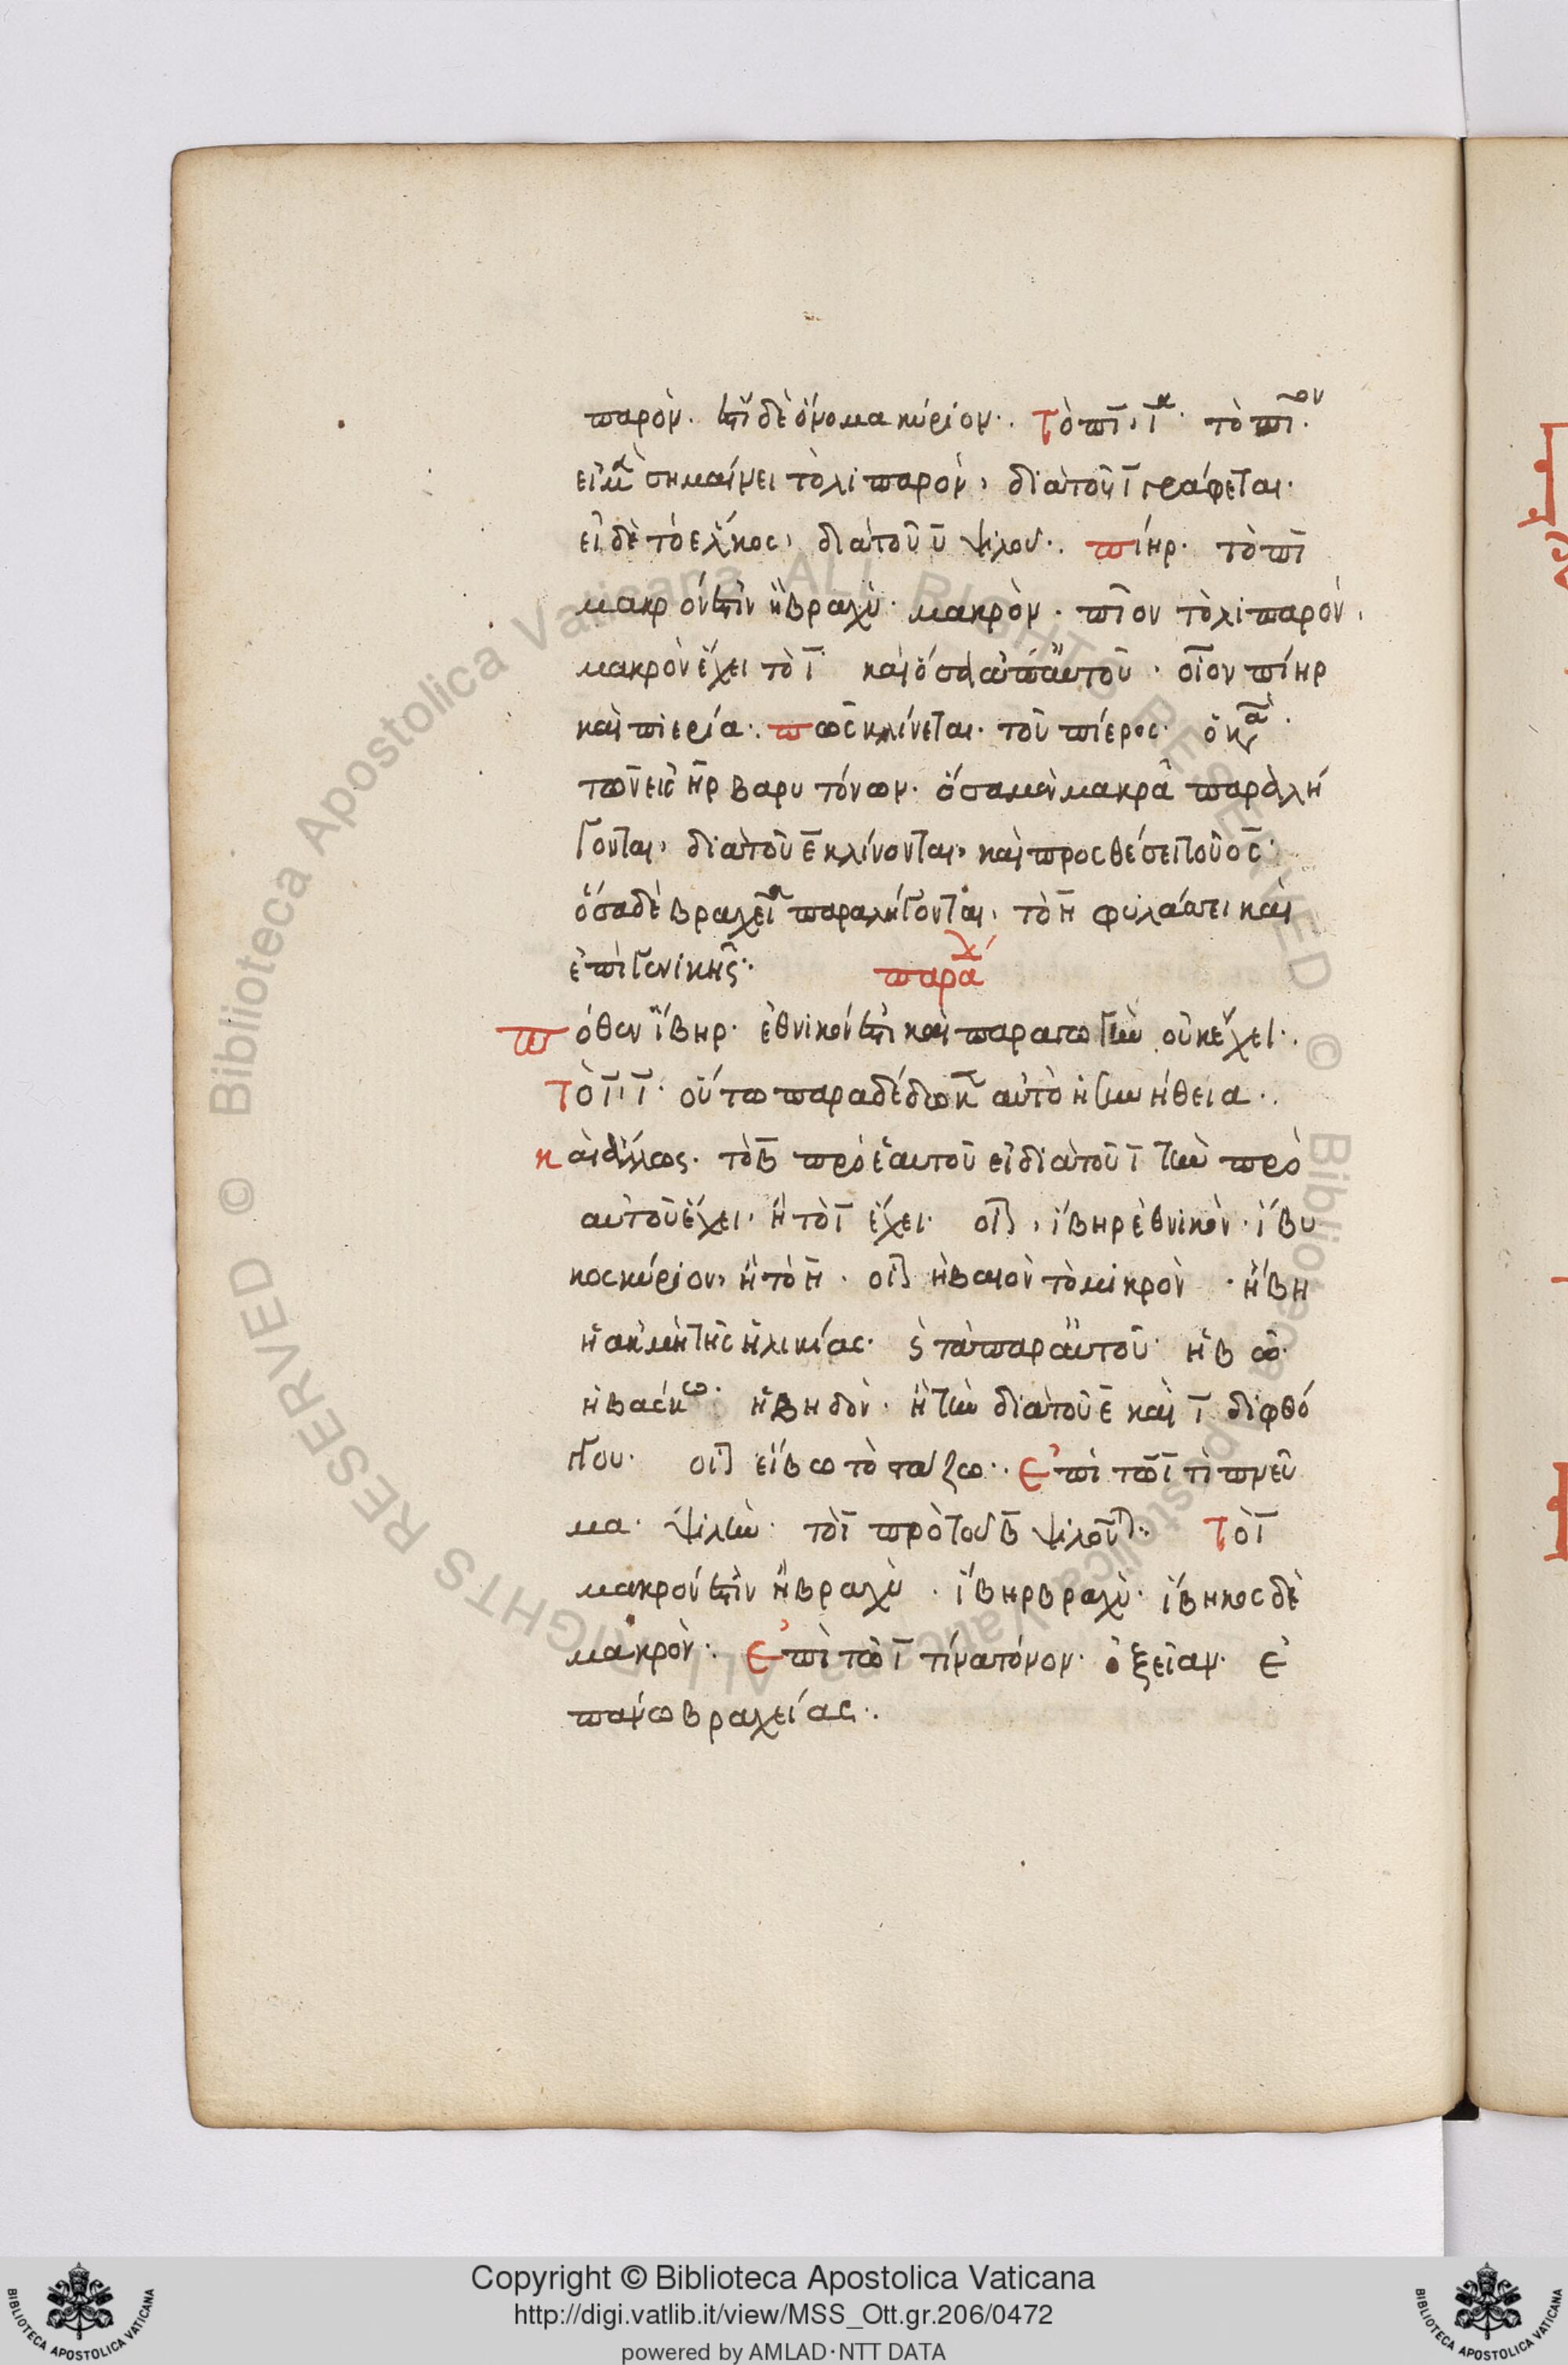 παρὸν. ἐστὶ δὲ ὄνομα κύριον·. Τὸ πῑ, ῑ κ· τὸ πῑον.
εἰ μὲν σημαίνει τὸ λιπαρὸν, διὰ τοῦ ῑ γράφεται·
εἰ δὲ τὸ ἕλκος, διὰ τοῦ ῡ ψιλοῦ·. πίηρ. τὸ πῑ
μακρόν ἐστιν ἢ βραχὺ· μακρὸν. πῖον τὸ λιπαρὸν,
μακρὸν ἔχει τὸ ῑ καὶ ὅσα ἀπ' αὐτοῦ. οἷον πίηρ
καὶ πιερία·. πῶς κλίνεται. τοῦ πίερος. ὁ κ
τῶν εἰς ηρ βαρυτόνων. ὅσα μὲν μακρᾶ παραλή
γονται, διὰ τοῦ ε̄ κλίνονται, καὶ προσθέσει τοῦ ος·
ὅσα δὲ βραχεῖα παραλήγονται, τὸ η̄ φυλάττει καὶ
ἐπὶ γενικῆς·. παρα
Πόθεν ἴβηρ. ἐθνικόν ἐστι καὶ παραγωγὴν οὐκ ἔχει·.
Τὸ ῑ, ῑ· οὕτω παραδέδωκεν αὐτὸ ἡ συνήθεια·.
Καὶ ἄλλως. τὸ β̄ πρὸ ἑαυτοῦ εἰ διὰ τοῦ ῑ τὴν πρὸ
αὐτοῦ ἔχει. ἢ τὸ ῑ ἔχει. οἷον, ἴβηρ ἐθνικὸν. ἴβυ
κος κύριον, ἢ τὸ η̄. οἷον ἠβαιὸν τὸ μικρὸν. ἥβη
ἡ ἀκμὴ τῆς ἡλικίας. καὶ τὰ παρ' αὐτοῦ· ἡβῶ·
ἡβάσκω· ἡβηδὸν. ἢ τὴν διὰ τοῦ ε̄ καὶ ῑ διφθό
γγου. οἷον εἴβω τὸ στάζω·. Ἐπὶ τῶ ῑ τί πνεῦ
μα. ψιλὴν. τὸ ῑ πρὸ τοῦ β̄ ψιλοῦται·. Τὸ ῑ
μακρόν ἐστιν ἢ βραχὺ. ἴβηρ βραχὺ. ἴβηκος δὲ
μακρὸν·. Ἐπὶ τὸ ῑ τίνα τόνον. ὀξεῖαν. ἐ
πάνω βραχείας·.
Copyright © Biblioteca Apostolica Vaticana
http://digi.vatlib.it/view/MSS_Ott.gr.206/0472
powered by AMLAD·NTT DATA